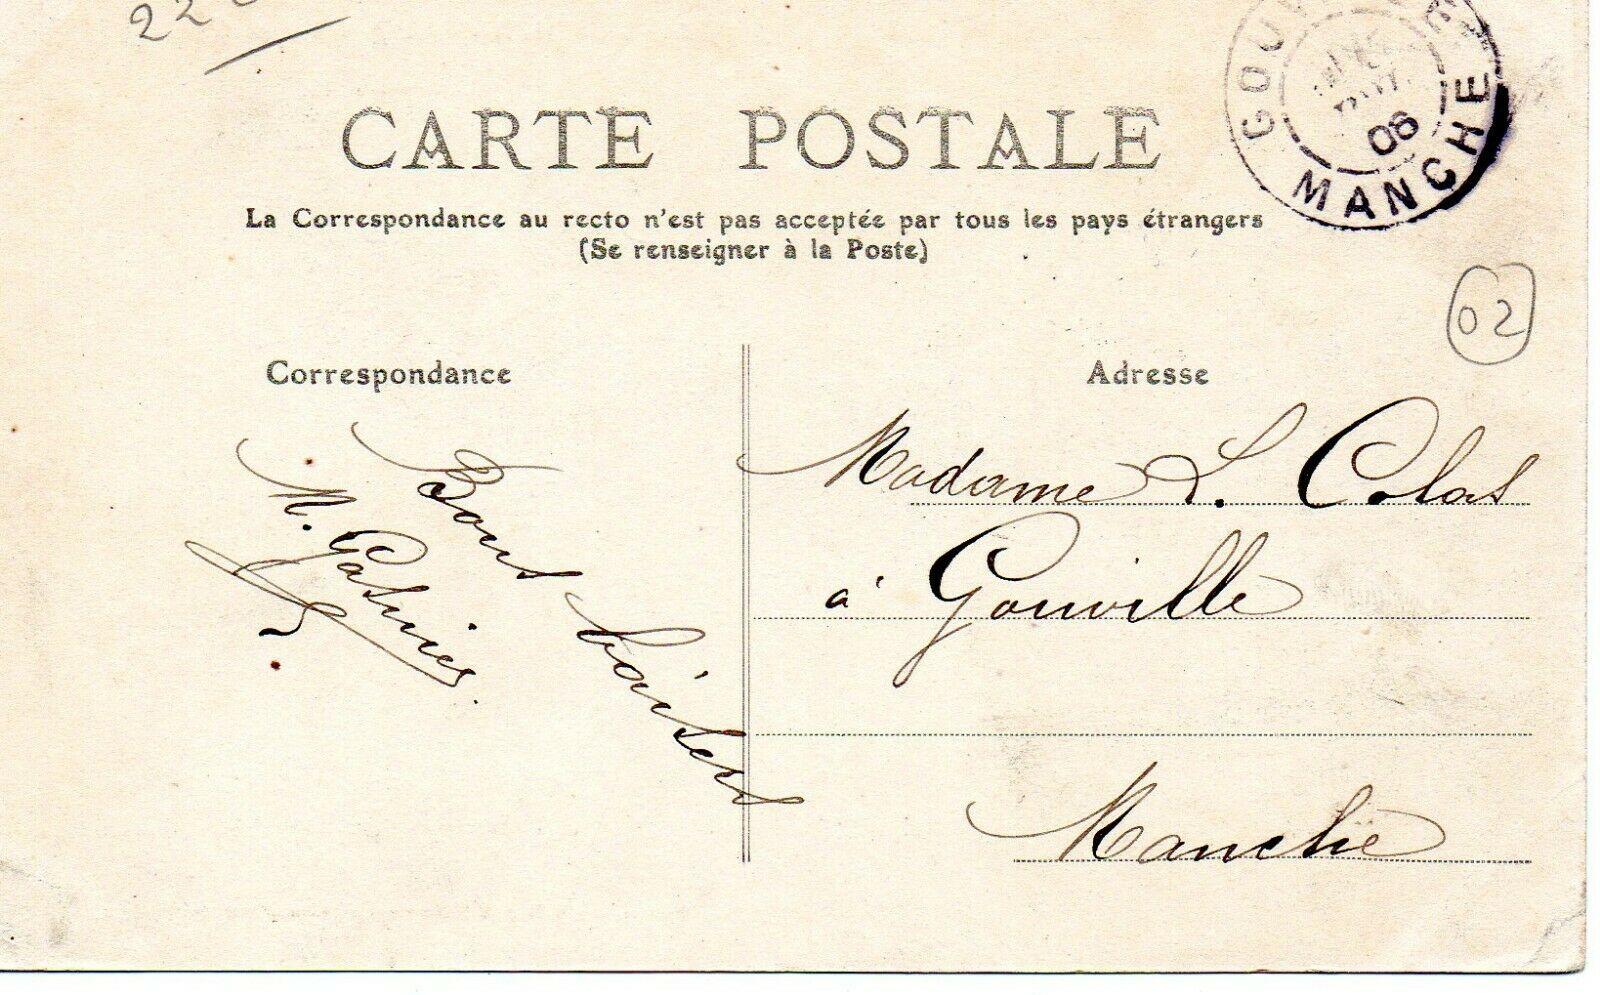 22
CARTE POSTALE
La Correspondance au recto n'est pas acceptée par tous les pays étrangers
(Se renseigner à la Poste)
MANCHE
06
02
Correspondance
Adresse
Bons baisers
M. Gatinies
Madame L. Colas
à Gouville
Manche